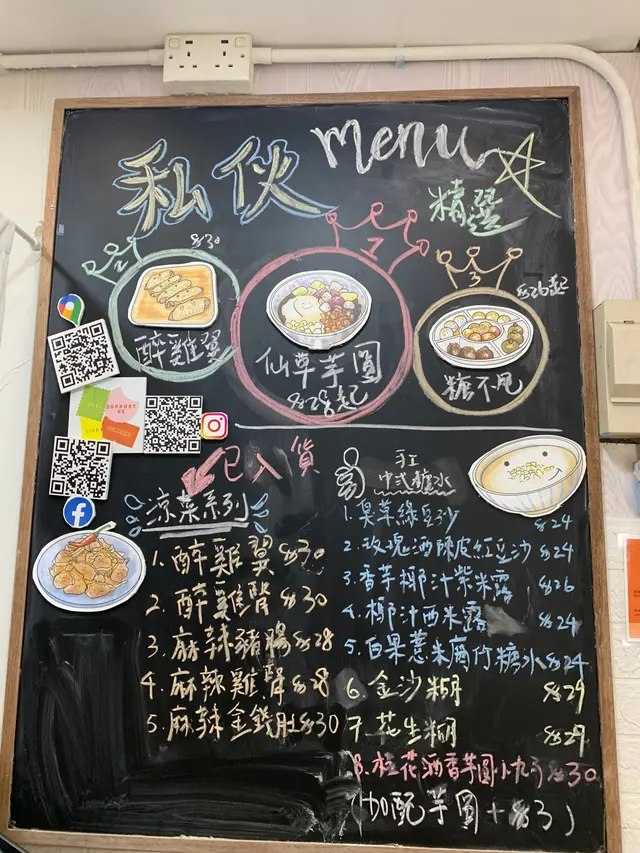 私伙 menu
精選
2
$30
醉雞翼
1
仙草芋圓
$28起
3
$26起
糖不甩
SUPPORT US
已入貨
涼菜系列
1. 醉雞翼 $30
2. 醉雞腎 $30
3. 麻辣豬腸 $28
4. 麻辣雞腎 $28
5. 麻辣金錢肚 $30
中式糖水
1. 臭草綠豆沙 $24
2. 玫瑰酒陳皮紅豆沙 $24
3. 香芋椰汁紫米露 $26
4. 椰汁西米露 $24
5. 白果薏米腐竹糖水 $24
6. 金沙糊 $29
7. 花生糊 $29
8. 桂花酒香芋圓小丸子 $30
(加配芋圓+$3)